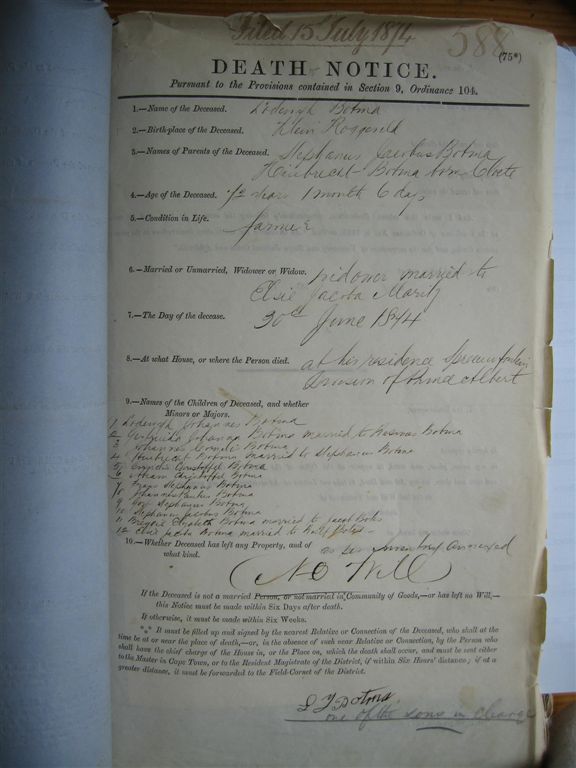 Filed 15 July 1874
588
(75*)
DEATH NOTICE.
Pursuant to the Provisions contained in Section 9, Ordinance 104.
1.—Name of the Deceased. Lodewyk Botma
2.—Birth-place of the Deceased. Klein Roggeveld
3.—Names of Parents of the Deceased. Stephanus Jacobus Botma
Huibrecht Botma born Cloete
4.—Age of the Deceased. years 1 month 6 days
5.—Condition in Life. farmer
6.—Married or Unmarried, Widower or Widow. widower married to
Elsie Jacoba Maritz
7.—The Day of the decease. 30th June 1874
8.—At what House, or where the Person died. at his residence Spreeuwfontein
Division of Prince Albert
9.—Names of the Children of Deceased, and whether
Minors or Majors.
1 Lodewyk Johannes Botma
2 Johanna Botma married to Botma
3 Johannes Botma
4 Huibrecht Botma married to Stephanus Botma
5 Christoffel Botma
6 Christoffel Botma
7 Stephanus Botma
8 Botma
9 Botma
10 Stephanus Jacobus Botma
11 Elizabeth Botma married to Jacob Botes
12 Elsie Jacoba Botma married to Botes
10.—Whether Deceased has left any Property, and of as per Inventory Annexed
what kind.
No Will
If the Deceased is not a married Person, or not married in Community of Goods,—or has left no Will,—
this Notice must be made within Six Days after death.
If otherwise, it must be made within Six Weeks.
*** It must be filled up and signed by the nearest Relative or Connection of the Deceased, who shall at the
time be at or near the place of death,—or, in the absence of such near Relative or Connection, by the Person who
shall have the chief charge of the House in, or the Place on, which the death shall occur, and must be sent either
to the Master in Cape Town, or to the Resident Magistrate of the District, if within Six Hours' distance; if at a
greater distance, it must be forwarded to the Field-Cornet of the District.
L J Botma
one of the sons in charge